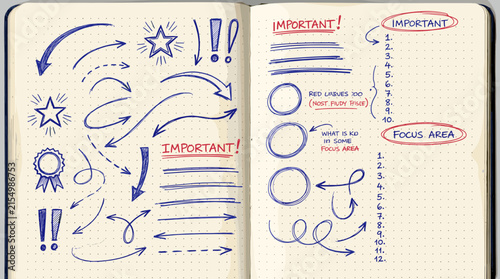 IMPORTANT!
IMPORTANT!
RED LABUES :00
(MOST FIUDY FIICE)
WHAT IS KD
IN SOME
FOCUS AREA
IMPORTANT
1.
2.
3.
4.
5.
6.
7.
8.
9.
10.
FOCUS AREA
1.
2.
3.
4.
5.
6.
7.
8.
9.
10.
11.
12.
Adobe Stock | #2154986753